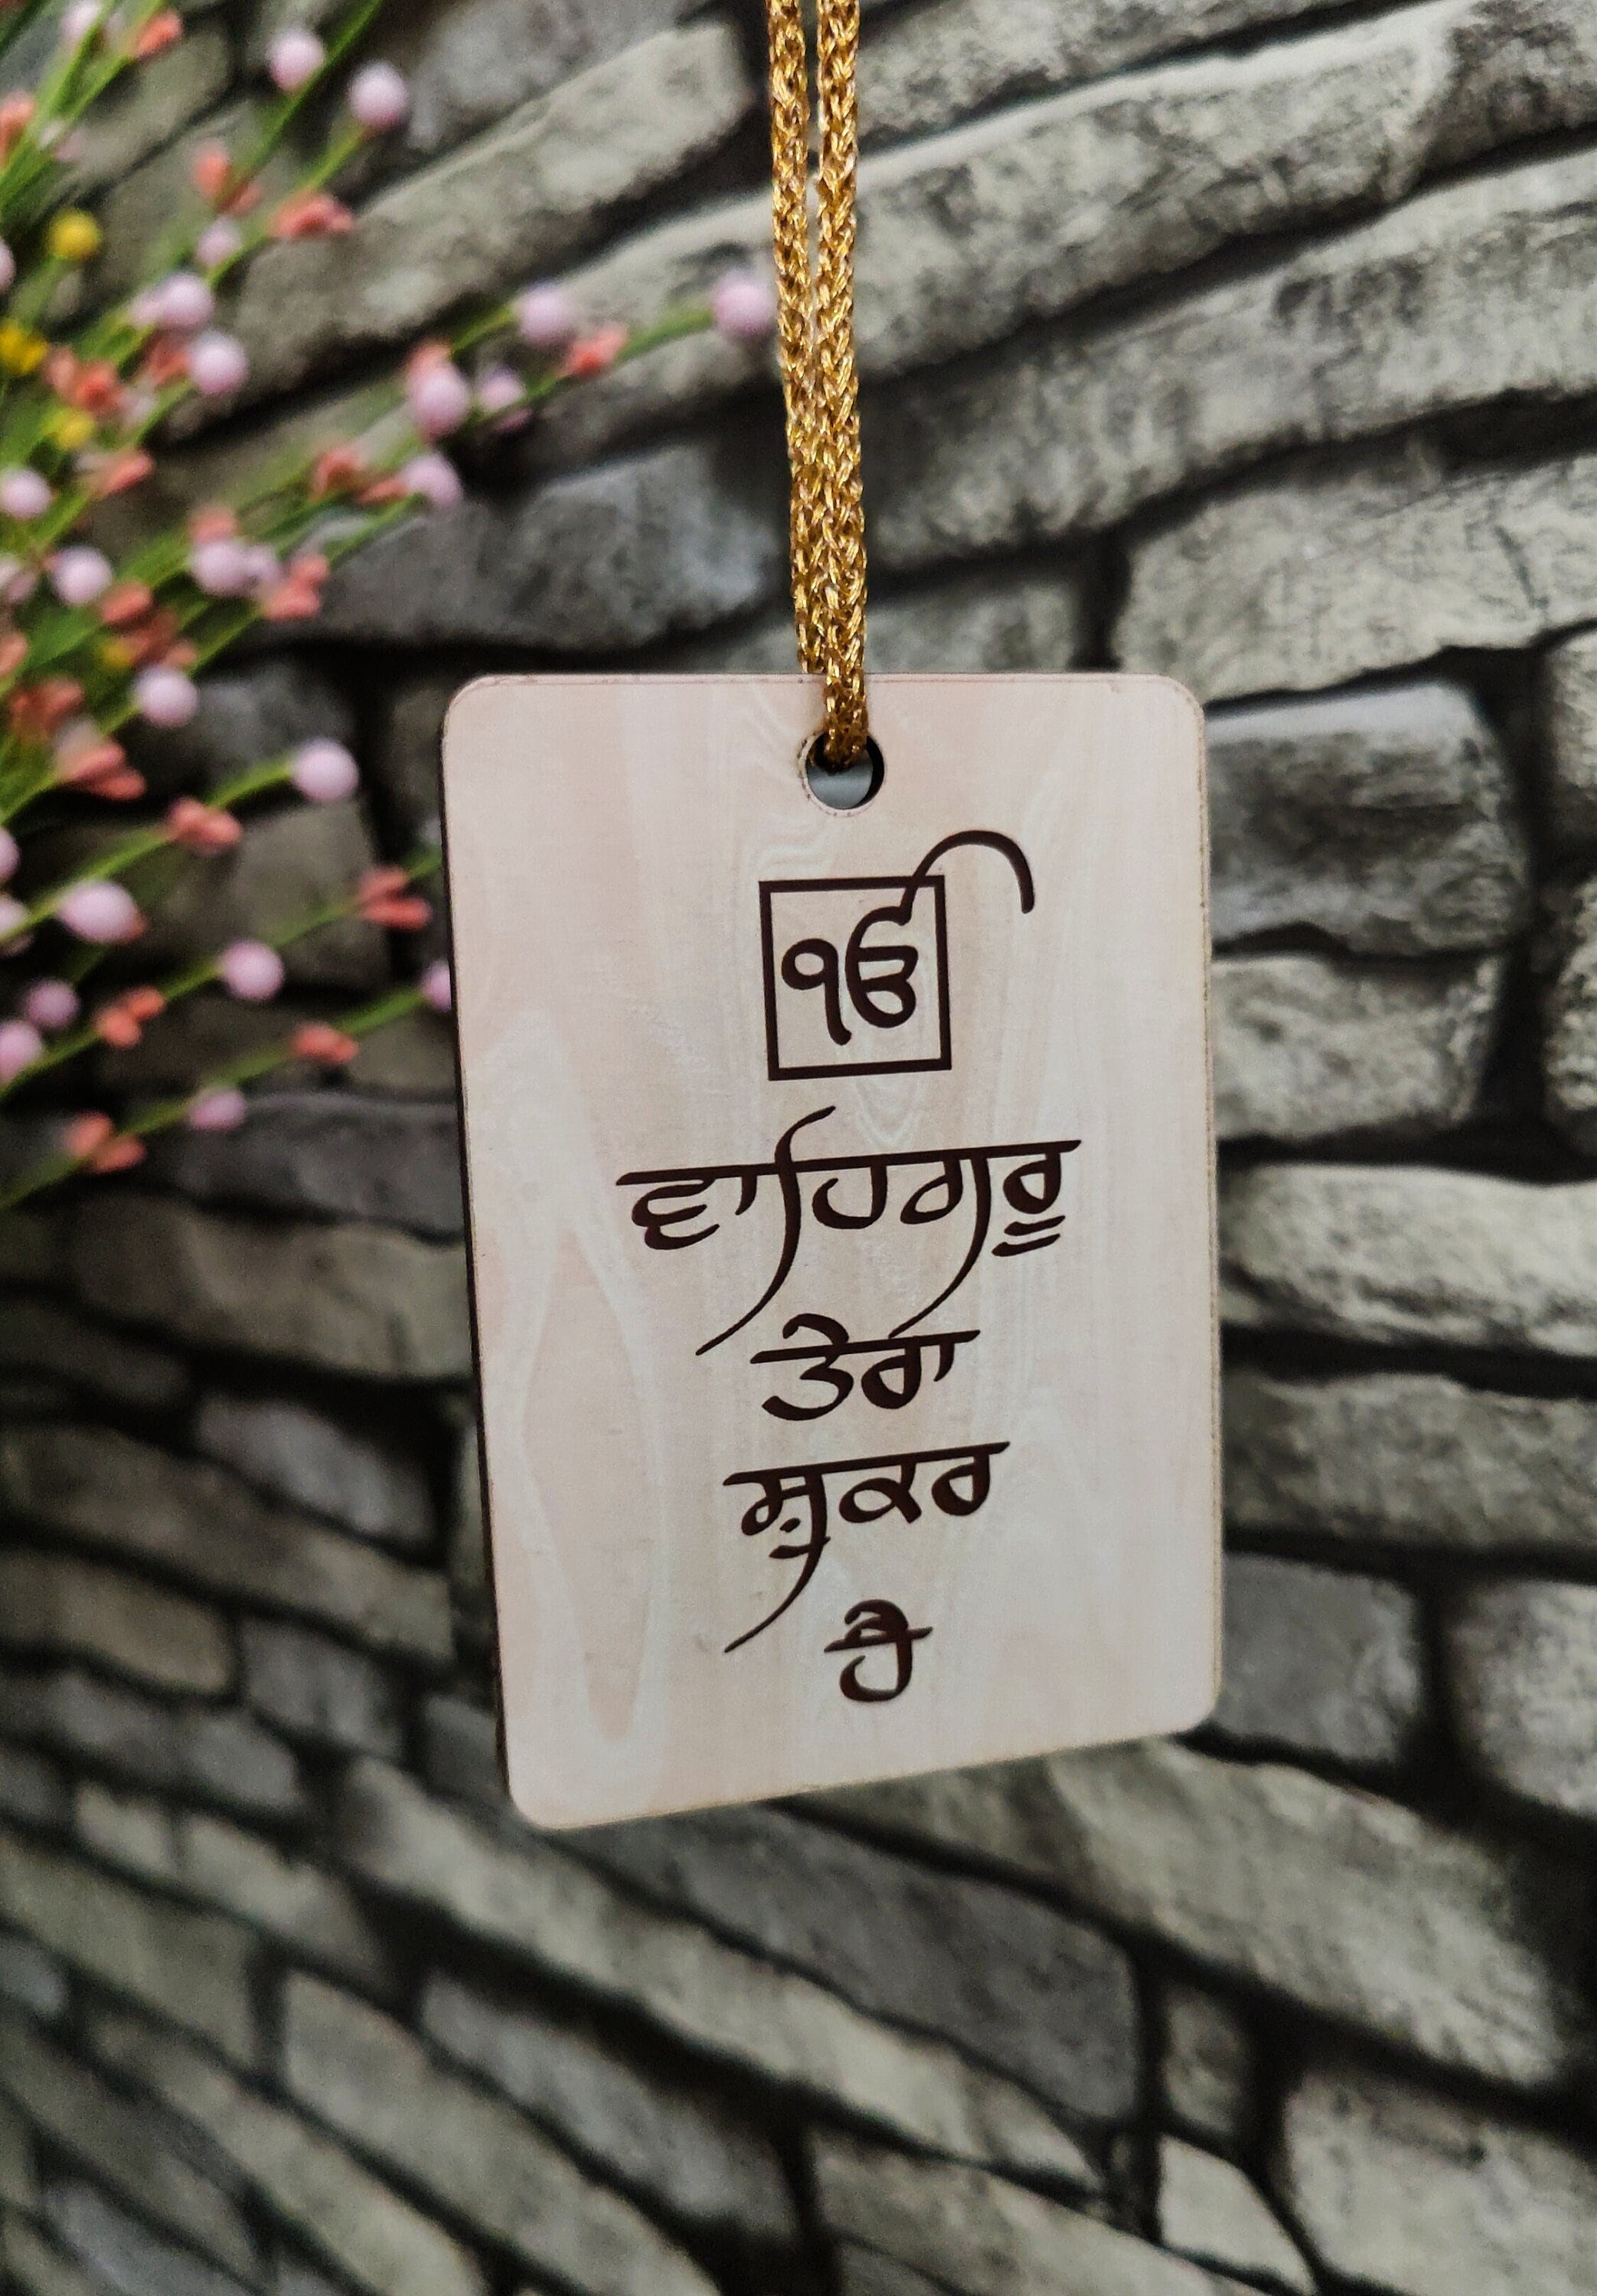 ੴ
ਵਾਹਿਗਰੂ
ਤੇਰਾ
ਸ਼ੁਕਰ
ਹੈ